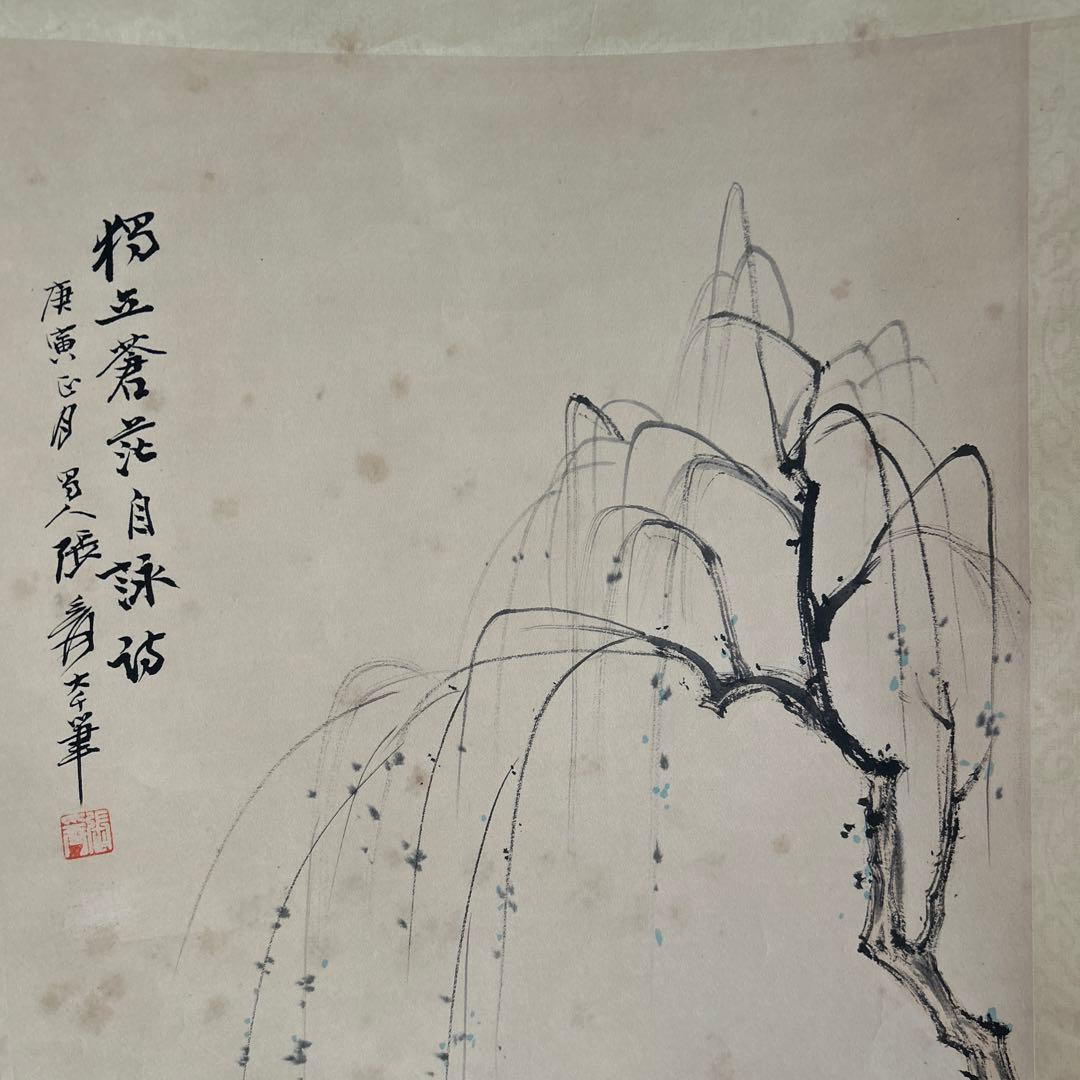 獨立蒼茫自詠詩
庚寅正月蜀人張爰大千筆
張爰